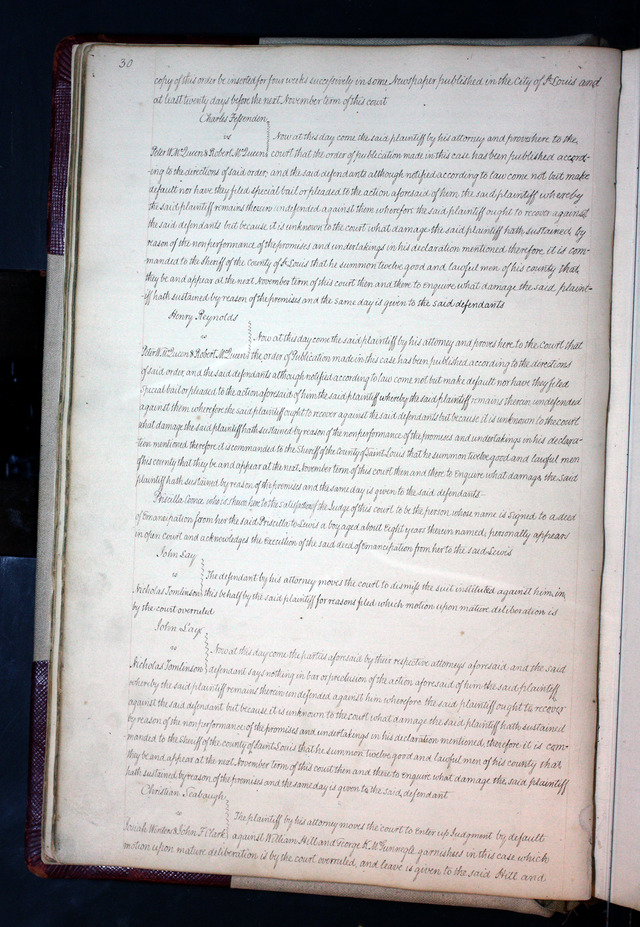 30
copy of this order be inserted for four weeks successively in some Newspaper published in the City of St Louis and
at least twenty days before the next November term of this court
Charles Fessenden
vs
Now at this day come the said plaintiff by his attorney and proves here to the
Peter W. McQueen & Robert McQueen court that the order of publication made in this case has been published accord-
ing to the directions of said order, and the said defendants although notified according to law come not but make
default nor have they filed special bail or pleaded to the action aforesaid of him the said plaintiff whereby
the said plaintiff remains therein undefended against them wherefore the said plaintiff ought to recover against
the said defendants but because it is unknown to the court what damage the said plaintiff hath sustained by
reason of the nonperformance of the promises and undertakings in his declaration mentioned therefore it is com-
manded to the Sheriff of the County of St Louis that he summon twelve good and lawful men of his county that
they be and appear at the next November term of this court then and there to enquire what damage the said plaint-
iff hath sustained by reason of the premises and the same day is given to the said defendants
Henry Reynolds
vs
Now at this day come the said plaintiff by his attorney and proves here to the court that
Peter W. McQueen & Robert McQueen the order of Publication made in this case has been published according to the directions
of said order, and the said defendants although notified according to law come not but make default nor have they filed
special bail or pleaded to the action aforesaid of him the said plaintiff whereby the said plaintiff remains therein undefended
against them wherefore the said plaintiff ought to recover against the said defendants but because it is unknown to the court
what damage the said plaintiff hath sustained by reason of the nonperformance of the promises and undertakings in his declara-
tion mentioned therefore it is commanded to the Sheriff of the County of Saint Louis that he summon twelve good and lawful men
of his county that they be and appear at the next November term of this court then and there to enquire what damage the said
plaintiff hath sustained by reason of the premises and the same day is given to the said defendants
Priscilla Coonce who is shewn here to the satisfaction of the Judge of this court to be the person whose name is signed to a deed
of Emancipation from her the said Priscilla to Lewis a boy aged about Eight years therein named, personally appears
in open court and acknowledges the Execution of the said deed of Emancipation from her to the said Lewis
John Lay
vs
The defendant by his attorney moves the court to dismiss the suit instituted against him, in
Nicholas Tomlinson this behalf by the said plaintiff for reasons filed which motion upon mature deliberation is
by the court overruled
John Lay
vs
Now at this day come the parties aforesaid by their respective attorneys aforesaid and the said
Nicholas Tomlinson defendant says nothing in bar or preclusion of the action aforesaid of him the said plaintiff
whereby the said plaintiff remains therein undefended against him wherefore the said plaintiff ought to recover
against the said defendant but because it is unknown to the court what damage the said plaintiff hath sustained
by reason of the nonperformance of the promises and undertakings in his declaration mentioned, therefore it is com-
manded to the Sheriff of the county of Saint Louis that he summon twelve good and lawful men of his county that
they be and appear at the next November term of this court then and there to enquire what damage the said plaintiff
hath sustained by reason of the premises and the same day is given to the said defendant
Christian Seabaugh
vs
The plaintiff by his attorney moves the court to enter up Judgment by default
Josiah Winters & John F. Clark against William Hill and George K. McGunnegle garnishees in this case which
motion upon mature deliberation is by the court overruled, and leave is given to the said Hill and